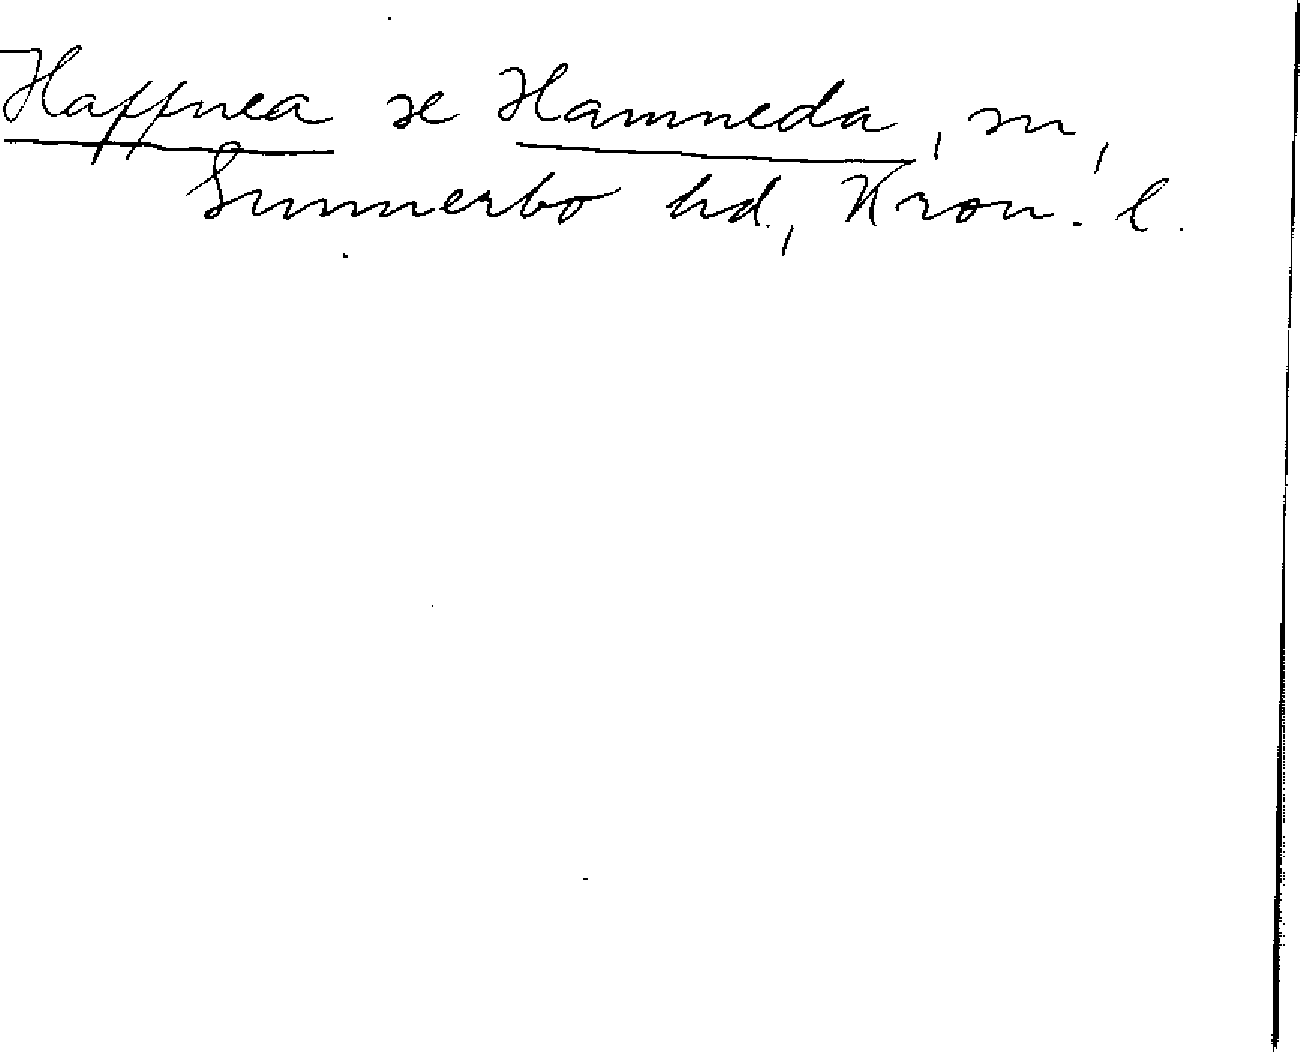 Haffnea se Hamneda, sn,
Sunnerbo hd., Kron. l.